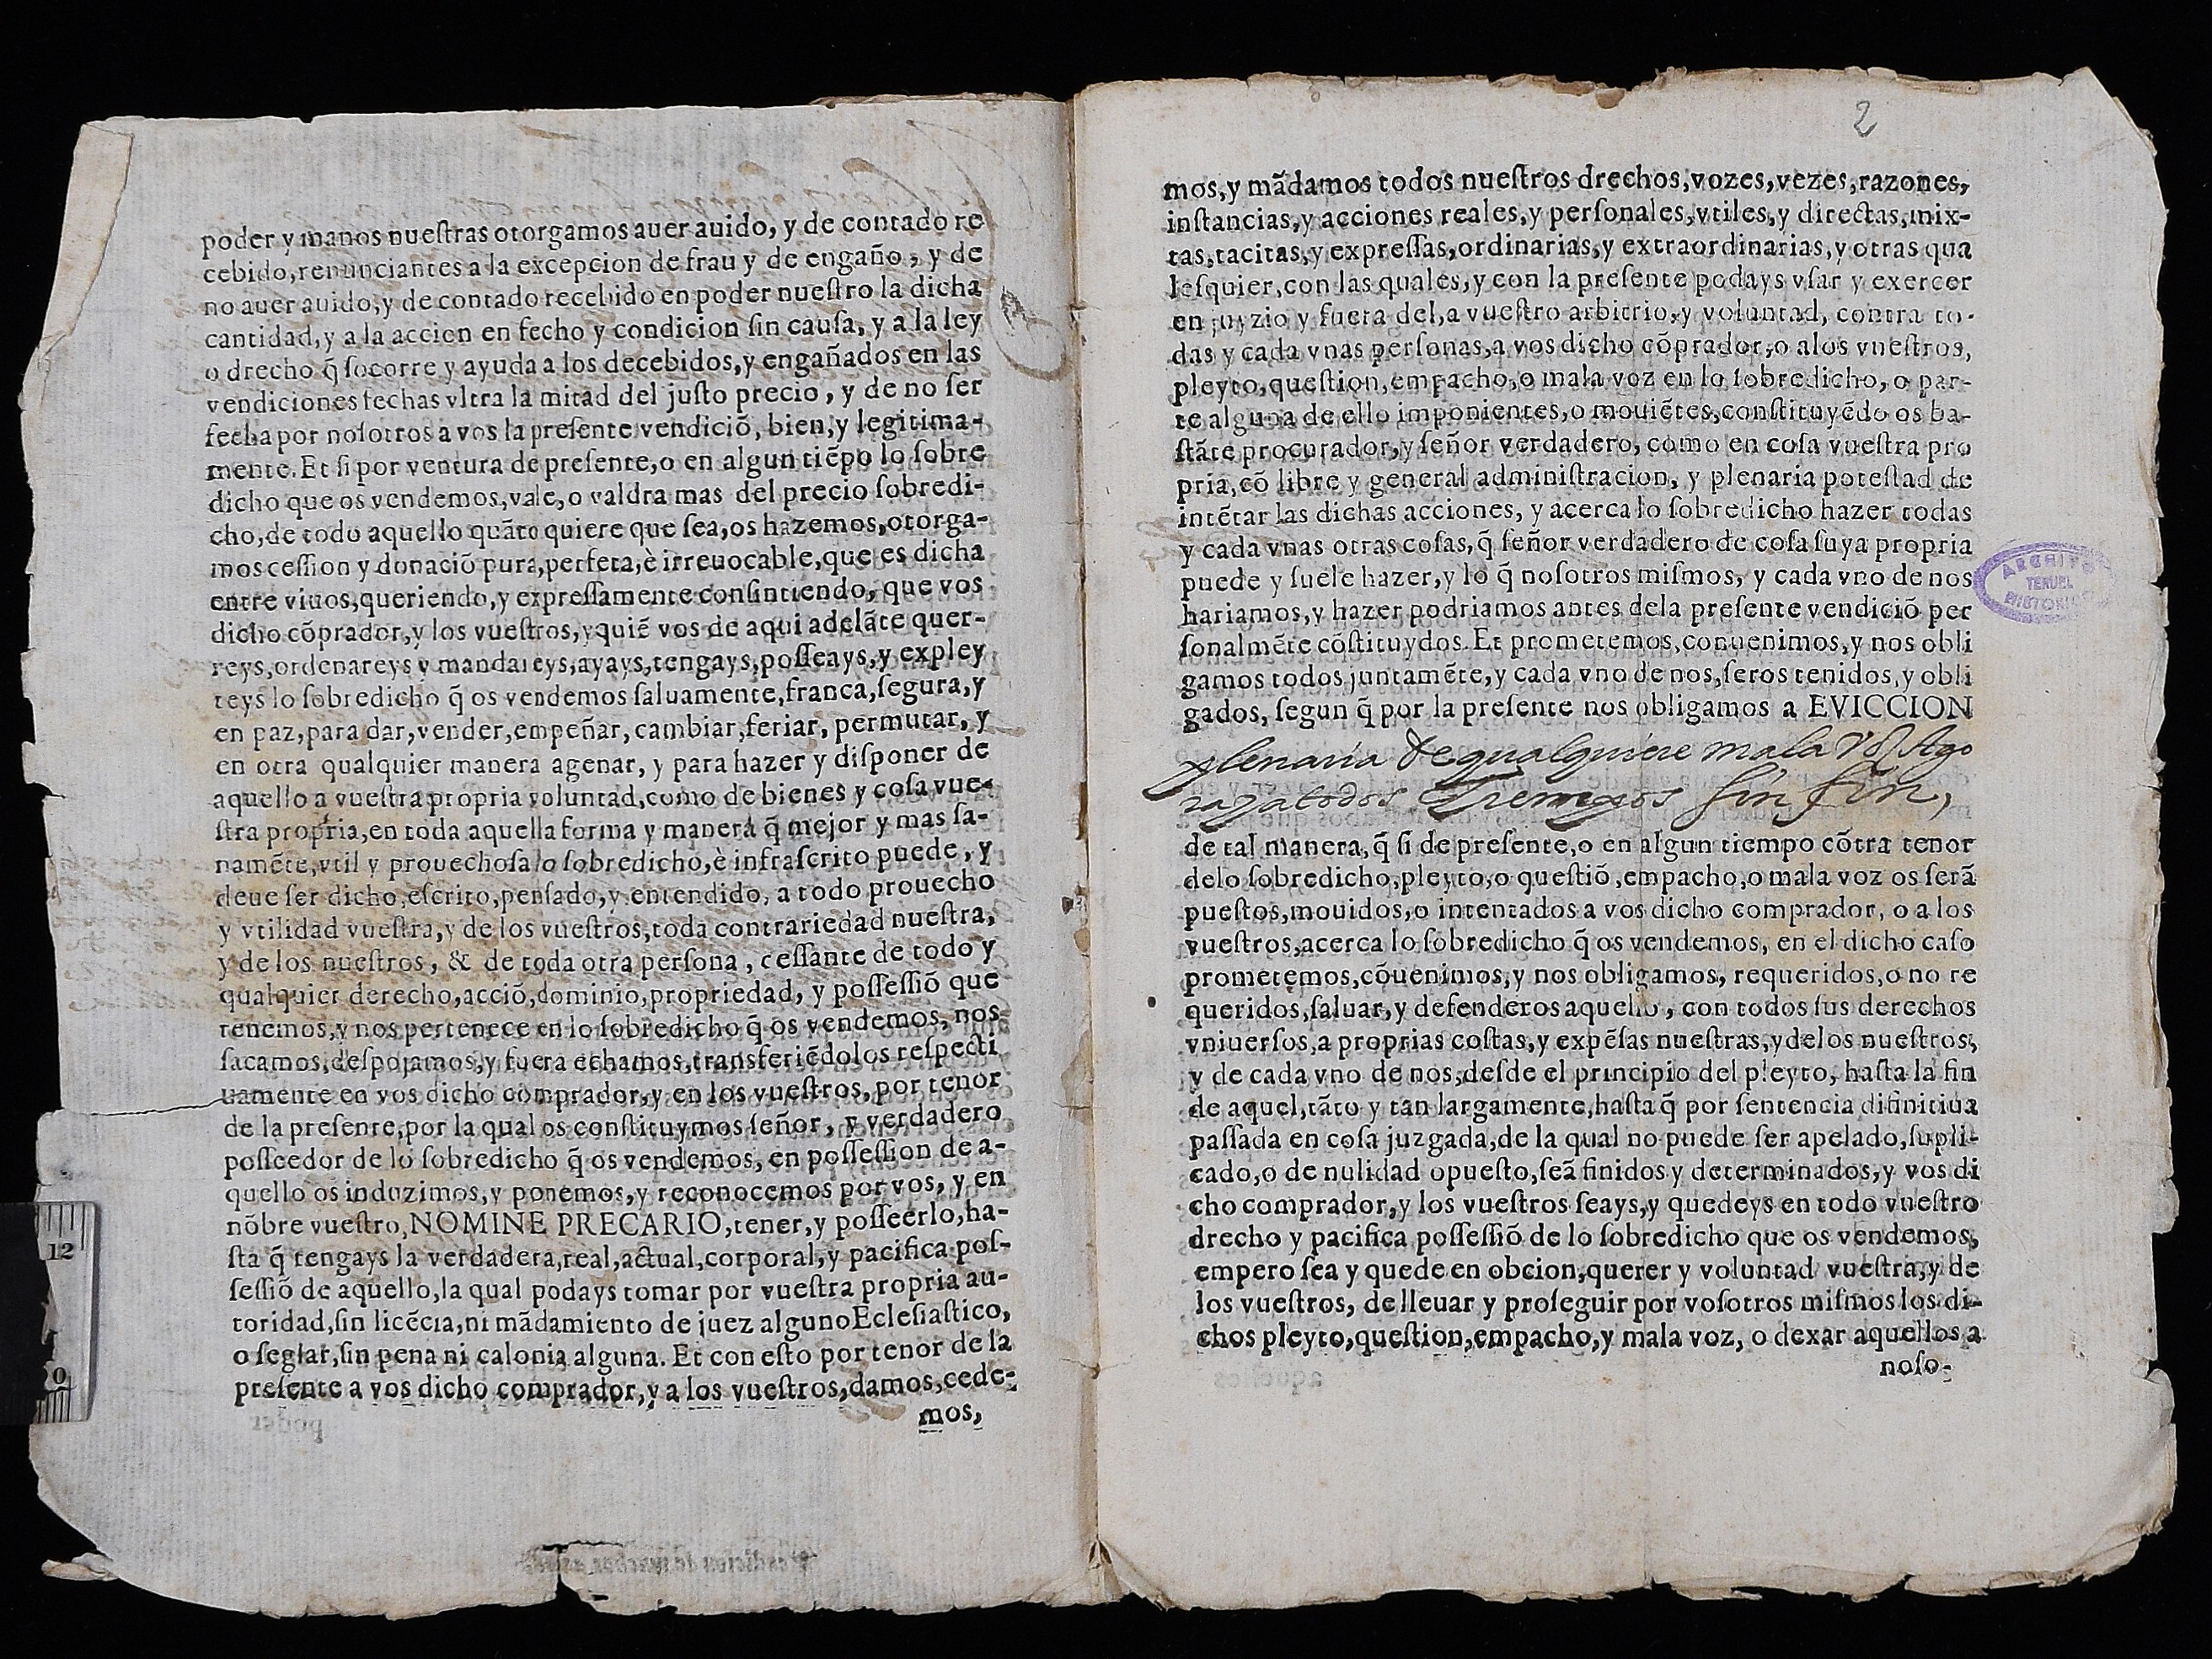 poder y manos nuestras otorgamos auer auido, y de contado re
cebido, renunciantes a la excepcion de frau y de engaño, y de
no auer auido, y de contado recebido en poder nuestro la dicha
cantidad, y a la accion en fecho y condicion sin causa, y a la ley
o drecho q̃ socorre y ayuda a los decebidos, y engañados en las
vendiciones fechas vltra la mitad del justo precio, y de no ser
fecha por nosotros a vos la presente vendiciõ, bien, y legitima-
mente. Et si por ventura de presente, o en algun tiẽpo lo sobre
dicho que os vendemos, vale, o valdra mas del precio sobredi-
cho, de todo aquello quãto quiere que sea, os hazemos, otorga-
mos cession y donaciõ pura, perfeta, è irreuocable, que es dicha
entre viuos, queriendo, y expressamente consintiendo, que vos
dicho cõprador, y los vuestros, y quiẽ vos de aqui adelãte quer-
reys, ordenareys y mandareys, ayays, tengays, posseays, y expley
teys lo sobredicho q̃ os vendemos saluamente, franca, segura, y
en paz, para dar, vender, empeñar, cambiar, feriar, permutar, y
en otra qualquier manera agenar, y para hazer y disponer de
aquello a vuestra propria voluntad, como de bienes y cosa vue-
stra propria, en toda aquella forma y manera q̃ mejor y mas sa-
namẽte, vtil y prouechosa lo sobredicho, è infrascrito puede, y
deue ser dicho, escrito, pensado, y entendido, a todo prouecho
y vtilidad vuestra, y de los vuestros, toda contrariedad nuestra,
y de los nuestros, & de toda otra persona, cessante de todo y
qualquier derecho, acciõ, dominio, propriedad, y possessiõ que
tenemos, y nos pertenece en lo sobredicho q̃ os vendemos, nos
sacamos, despojamos, y fuera echamos, transferiẽdolos respecti
uamente en vos dicho comprador, y en los vuestros, por tenor
de la presente, por la qual os constituymos señor, y verdadero
posseedor de lo sobredicho q̃ os vendemos, en possession de a-
quello os induzimos, y ponemos, y reconocemos por vos, y en
nõbre vuestro, NOMINE PRECARIO, tener, y posseerlo, ha-
sta q̃ tengays la verdadera, real, actual, corporal, y pacifica pos-
sessiõ de aquello, la qual podays tomar por vuestra propria au-
toridad, sin licẽcia, ni mãdamiento de juez alguno Eclesiastico,
o seglar, sin pena ni calonia alguna. Et con esto por tenor de la
presente a vos dicho comprador, y a los vuestros, damos, cede-
mos,
2
mos, y mãdamos todos nuestros drechos, vozes, vezes, razones,
instancias, y acciones reales, y personales, vtiles, y directas, mix-
tas, tacitas, y expressas, ordinarias, y extraordinarias, y otras qua
lesquier, con las quales, y con la presente podays vsar y exercer
en juyzio y fuera del, a vuestro arbitrio, y voluntad, contra to-
das y cada vnas personas, a vos dicho cõprador, o a los vuestros,
pleyto, question, empacho, o mala voz en lo sobredicho, o par-
te alguna de ello imponientes, o mouiẽtes, constituyẽdo os ba-
stãte procurador, y señor verdadero, como en cosa vuestra pro
pria, cõ libre y general administracion, y plenaria potestad de
intẽtar las dichas acciones, y acerca lo sobredicho hazer todas
y cada vnas otras cosas, q̃ señor verdadero de cosa suya propria
puede y suele hazer, y lo q̃ nosotros mismos, y cada vno de nos
hariamos, y hazer podriamos antes dela presente vendiciõ per
sonalmẽte cõstituydos. Et prometemos, conuenimos, y nos obli
gamos todos juntamẽte, y cada vno de nos, seros tenidos, y obli
gados, segun q̃ por la presente nos obligamos a EVICCION
plenaria de qualquiere mala voz Ago
ra y a todos Tiempos sin fin,
de tal manera, q̃ si de presente, o en algun tiempo cõtra tenor
delo sobredicho, pleyto, o questiõ, empacho, o mala voz os serã
puestos, mouidos, o intentados a vos dicho comprador, o a los
vuestros, acerca lo sobredicho q̃ os vendemos, en el dicho caso
prometemos, cõuenimos, y nos obligamos, requeridos, o no re
queridos, saluar, y defenderos aquello, con todos sus derechos
vniuersos, a proprias costas, y expẽsas nuestras, y delos nuestros,
y de cada vno de nos, desde el principio del pleyto, hasta la fin
de aquel, tãto y tan largamente, hasta q̃ por sentencia difinitiua
passada en cosa juzgada, de la qual no puede ser apelado, supli-
cado, o de nulidad opuesto, seã finidos y determinados, y vos di
cho comprador, y los vuestros seays, y quedeys en todo vuestro
drecho y pacifica possessiõ de lo sobredicho que os vendemos,
empero sea y quede en obcion, querer y voluntad vuestra, y de
los vuestros, de lleuar y proseguir por vosotros mismos los di-
chos pleyto, question, empacho, y mala voz, o dexar aquellos a
noso-
ARCHIVO
TERUEL
HISTORICO
12